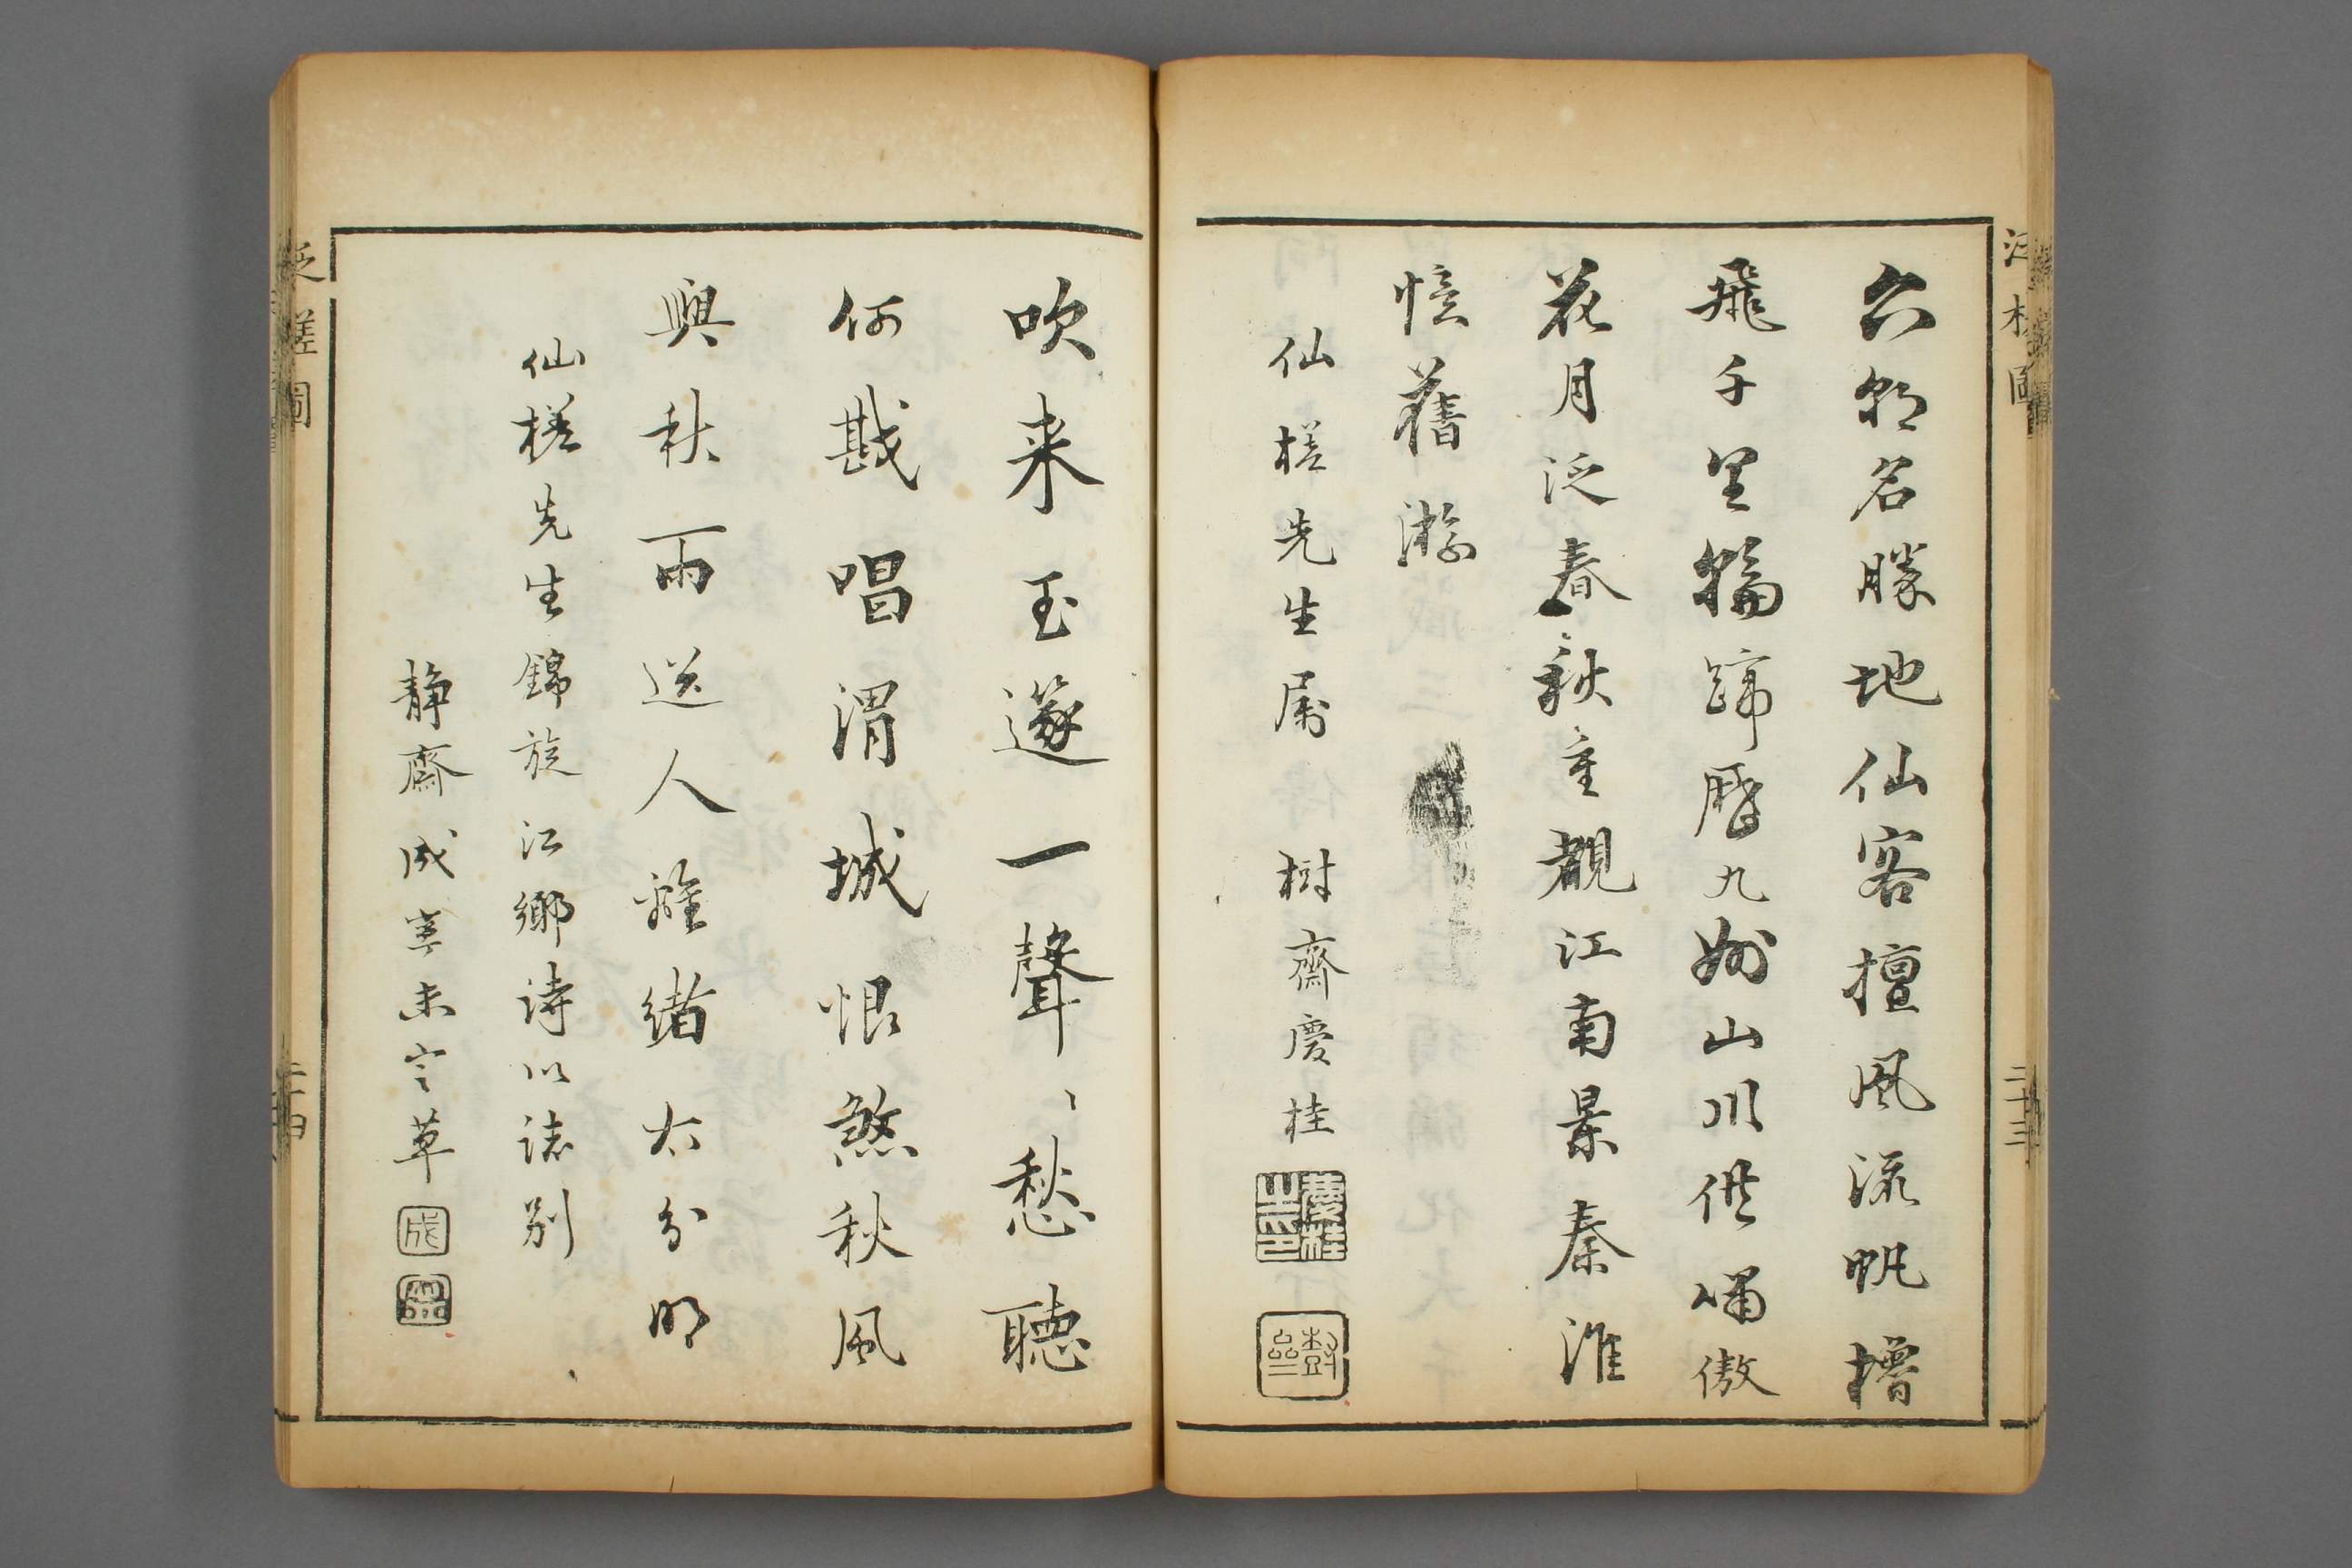 六朝名勝地仙客擅風流帆檣
飛千里輪蹄歷九州山川供嘯傲
花月泛春秋重覩江南景秦淮
憶舊游
仙槎先生屬
樹齋慶桂
慶桂之印
樹齋
吹来玉邃一聲、愁聽
何戡唱渭城恨煞秋風
與秋雨送人離緒太分明
仙槎先生錦旋江鄉詩以誌別
静齋成寧未定草
成
寧
泛槎圖
二十三
泛槎圖
二十四